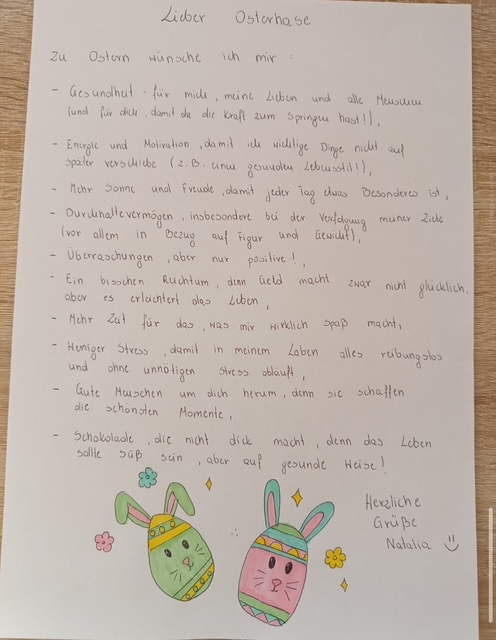 Lieber Osterhase
Zu Ostern wünsche ich mir :
- Gesundheit - für mich, meine Lieben und alle Menschen
(und für dich, damit du die Kraft zum Springen hast!),
- Energie und Motivation, damit ich wichtige Dinge nicht auf
später verschiebe (z.B. einen gesunden Lebensstil!),
- Mehr Sonne und Freude, damit jeder Tag etwas Besonderes ist,
- Durchhaltevermögen, insbesondere bei der Verfolgung meiner Ziele
(vor allem in Bezug auf Figur und Gewicht),
- Überraschungen, aber nur positive!,
- Ein bisschen Reichtum, denn Geld macht zwar nicht glücklich,
aber es erleichtert das Leben,
- Mehr Zeit für das, was mir wirklich Spaß macht,
- Weniger Stress, damit in meinem Leben alles reibungslos
und ohne unnötigen Stress abläuft,
- Gute Menschen um dich herum, denn sie schaffen
die schönsten Momente,
- Schokolade, die nicht dick macht, denn das Leben
sollte süß sein, aber auf gesunde Weise!
Herzliche
Grüße
Natalia